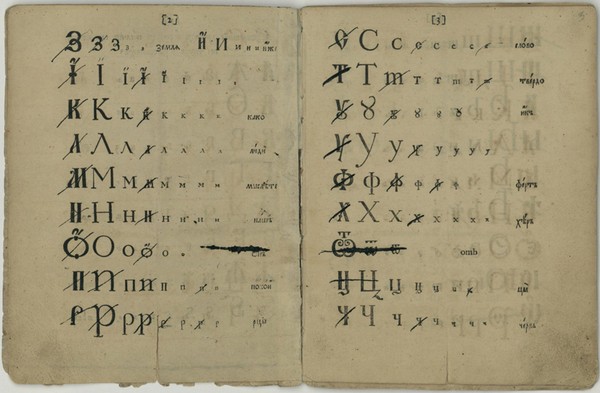 [2]
З З З З З З земля И И И и и иже
І І Ї ї і і і і і
К К К к к к к к к како
Л Л Л л л л л л люди
М М М м м м м м мыслѣте
Н Н Н н н н н нашъ
О О о о о о онъ
П П П п п п п п покои
Р Р Р р р р р рцы
[3]
С С С с с с с с слово
Т Т т т т т т твердо
Ꙋ Ꙋ ꙋ ꙋ ꙋ ꙋ икъ
У У у у у у у у
Ф ф ф ф ф ф фертъ
Х Х х х х х х х хѣръ
Ѿ ѿ ѿ отъ
Ц Ц ц ц ц ц ц цы
Ч Ч ч ч ч ч ч червь